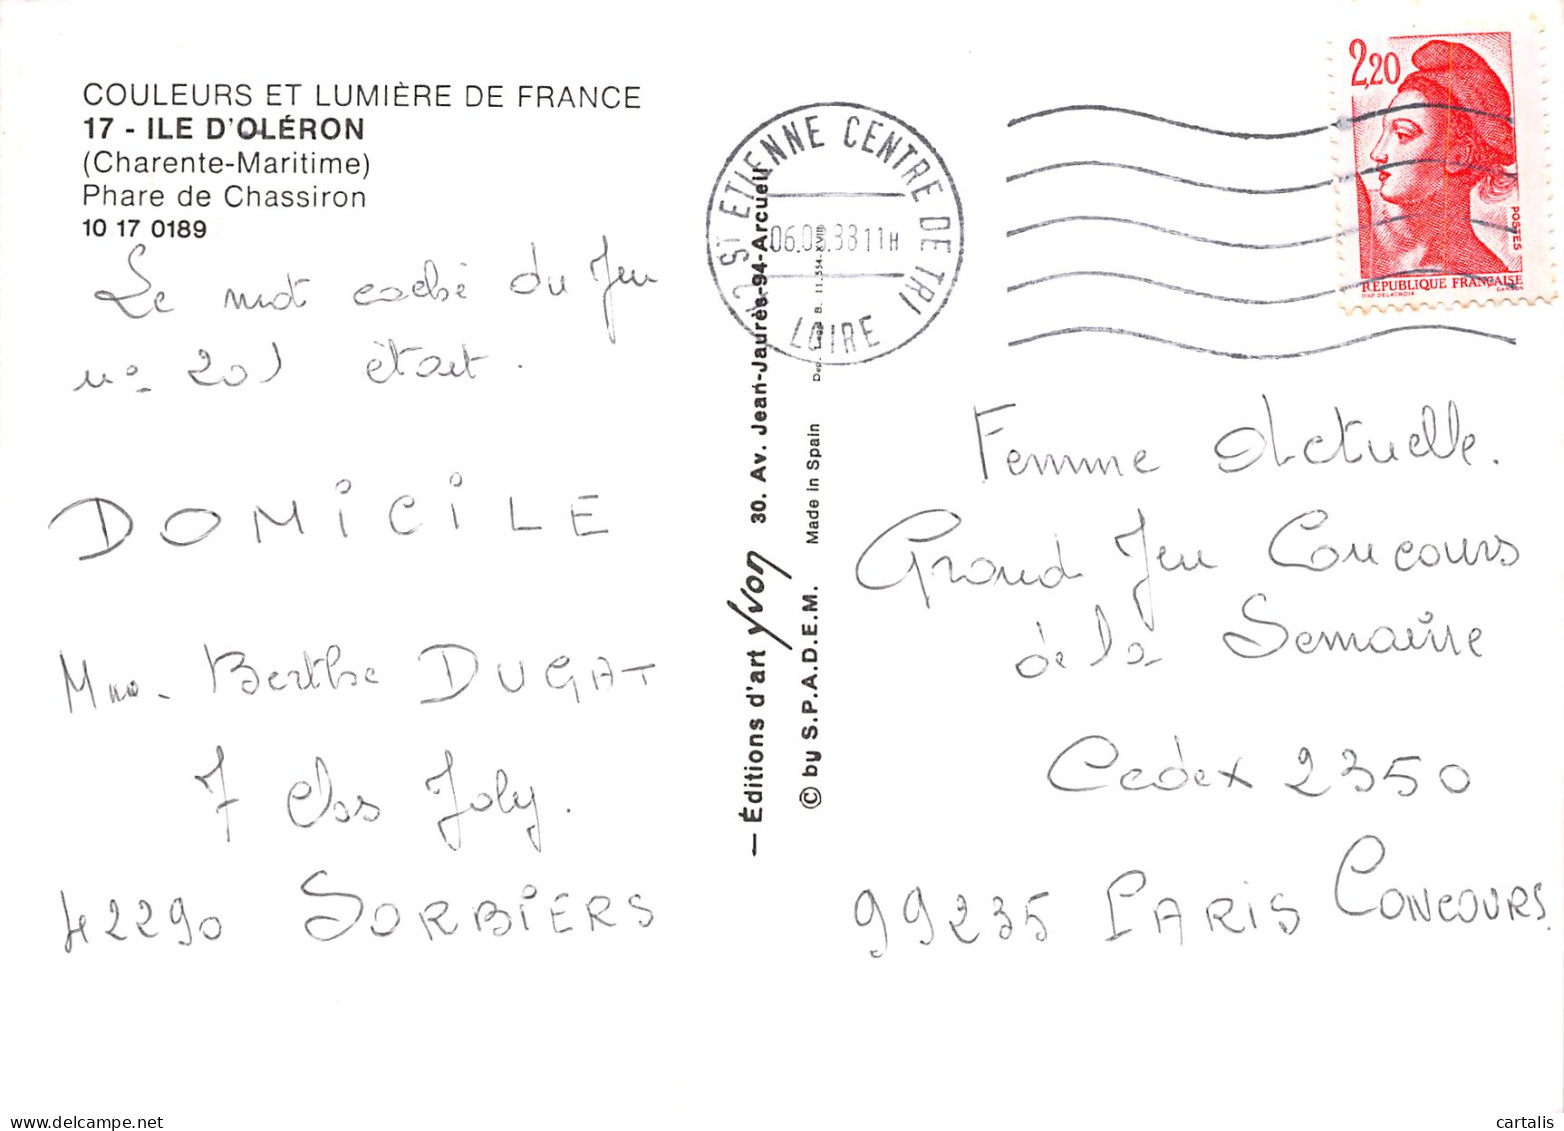 COULEURS ET LUMIÈRE DE FRANCE
17 - ILE D'OLÉRON
(Charente-Maritime)
Phare de Chassiron
10 17 0189
Le mot caché du Jeu
no 201 était.
DOMICILE
Mme. Berthe DUGAT
7 Clos Joly.
42290 SORBIERS
— Éditions d'art Yvon 30. Av. Jean-Jaurès-94-Arcueil
© by S.P.A.D.E.M. Made in Spain
42 ST ETIENNE CENTRE DE TRI
88 11H
LOIRE
2,20
POSTES
RÉPUBLIQUE FRANÇAISE
Femme Actuelle.
Grand Jeu Concours
de la Semaine
Cedex 2350
99235 PARIS CONCOURS.
www.delcampe.net
cartalis